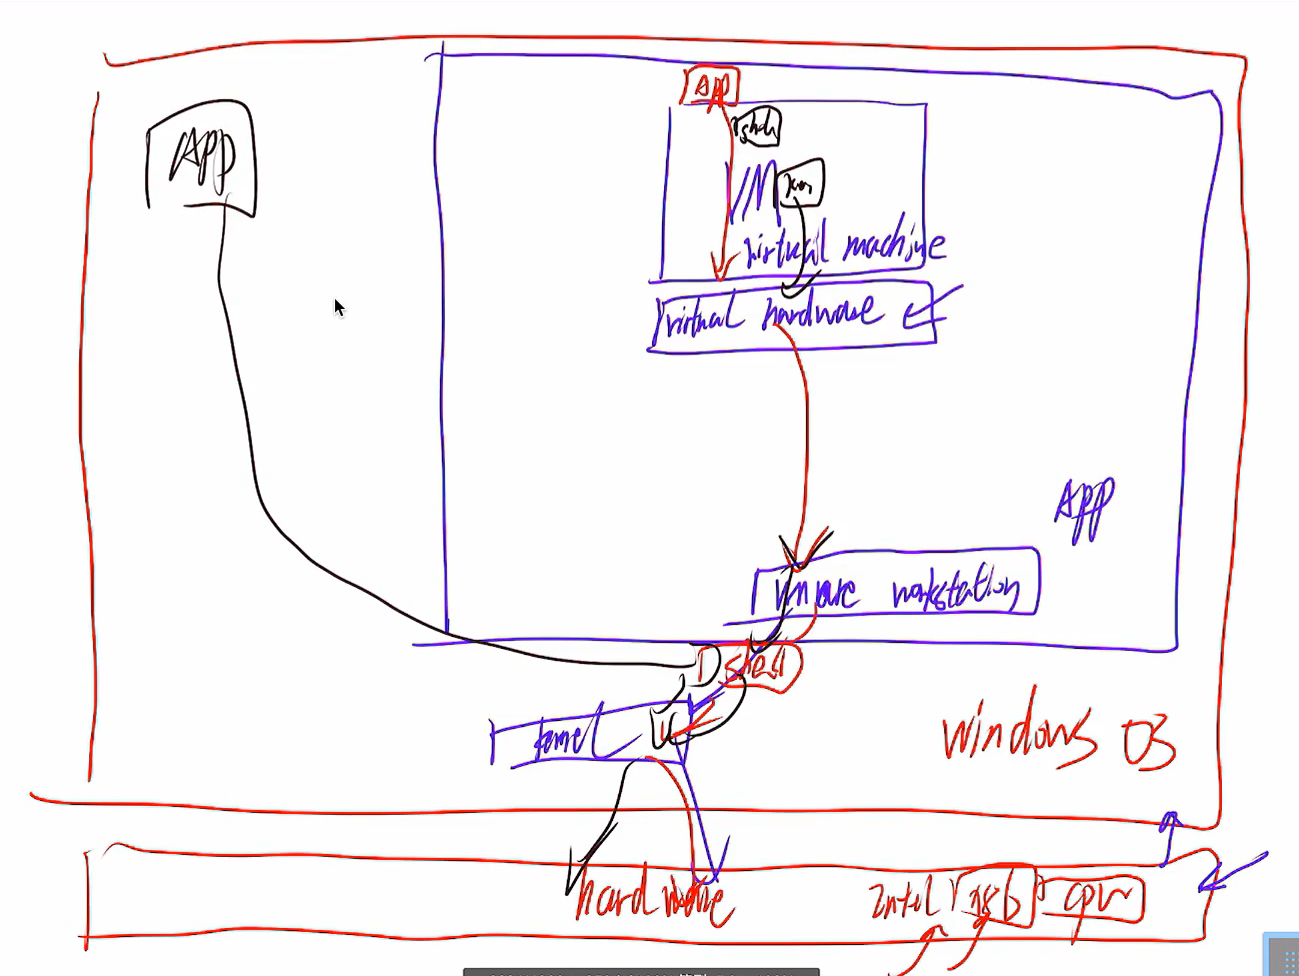 APP
APP
VM
virtual machine
virtual hardware
APP
vmware workstation
shell
kernel
windows OS
hardware
Intel X86 cpu